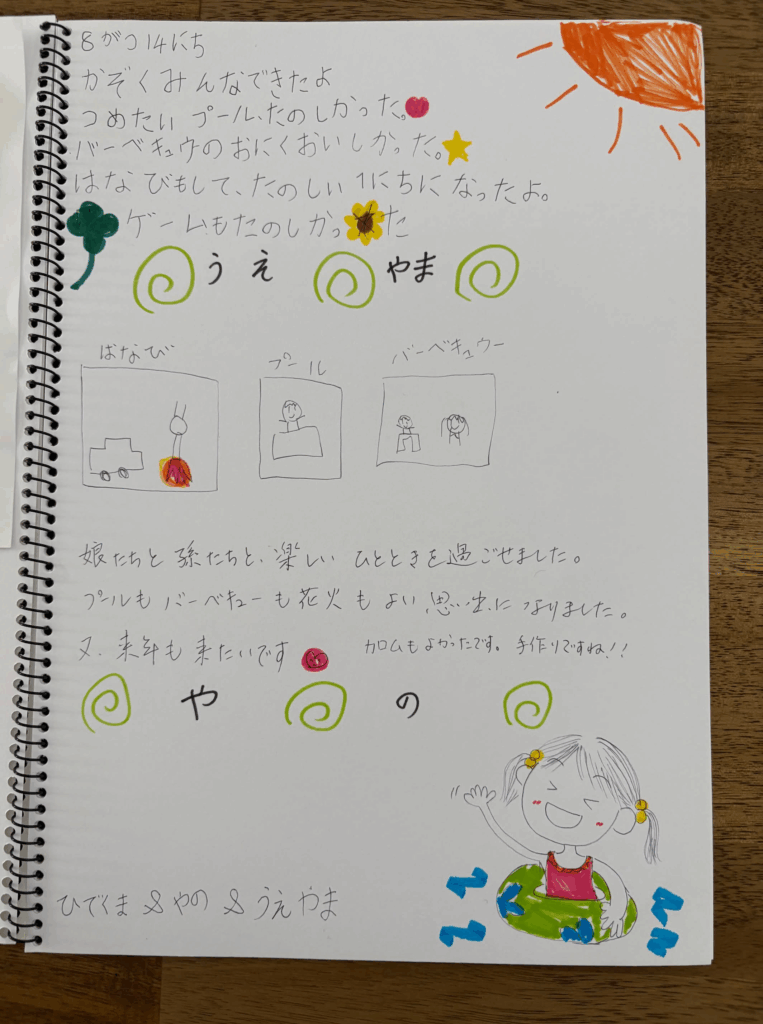 8がつ14にち
かぞくみんなできたよ
つめたいプール、たのしかった。
バーベキュウのおにくおいしかった。
はなびもして、たのしい1にちになったよ。
ゲームもたのしかった
うえ やま
はなび プール バーベキュウー
娘たちと孫たちと、楽しいひとときを過ごせました。
プールもバーベキューも花火もよい思い出になりました。
又、来年も来たいです カロムもよかったです。手作りですね!!
や の
ひでくま & やの & うえやま